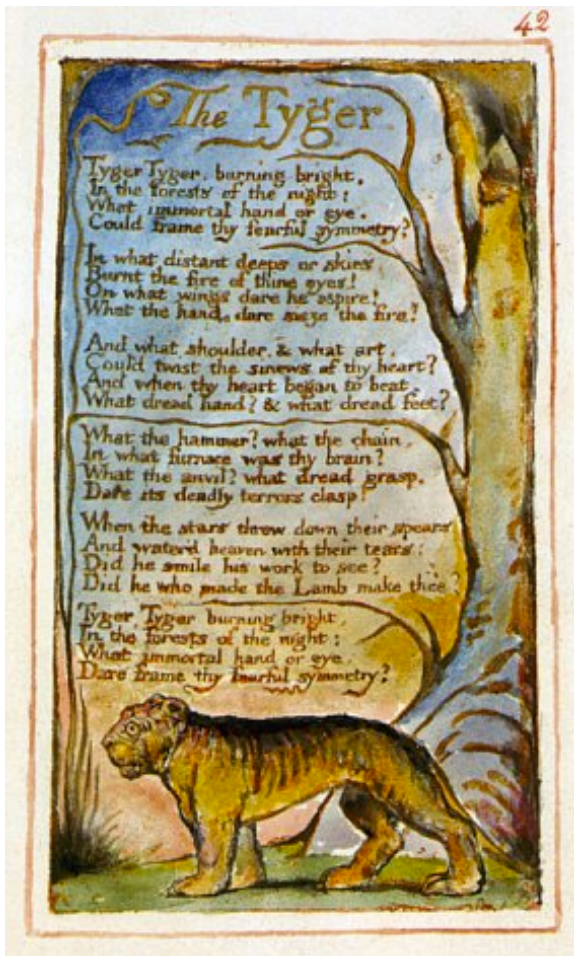 42
The Tyger
Tyger Tyger, burning bright,
In the forests of the night;
What immortal hand or eye,
Could frame thy fearful symmetry?
In what distant deeps or skies
Burnt the fire of thine eyes!
On what wings dare he aspire!
What the hand, dare sieze the fire?
And what shoulder, & what art,
Could twist the sinews of thy heart?
And when thy heart began to beat,
What dread hand? & what dread feet?
What the hammer? what the chain,
In what furnace was thy brain?
What the anvil? what dread grasp,
Dare its deadly terrors clasp!
When the stars threw down their spears
And water'd heaven with their tears:
Did he smile his work to see?
Did he who made the Lamb make thee?
Tyger Tyger burning bright,
In the forests of the night:
What immortal hand or eye,
Dare frame thy fearful symmetry?